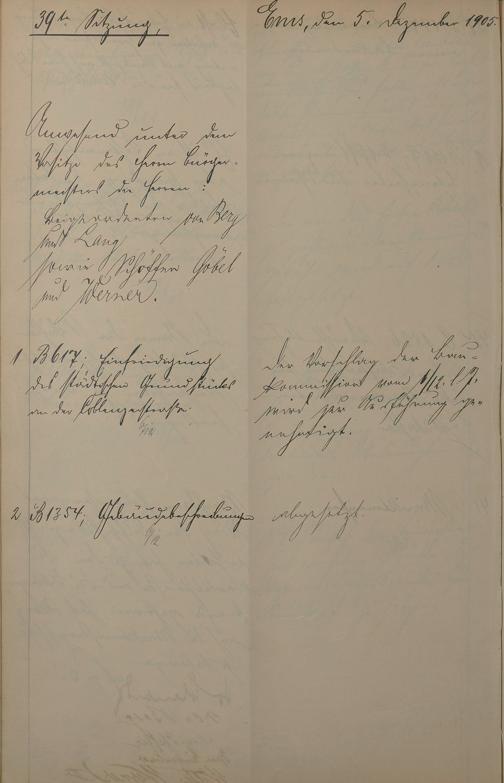 39te Sitzung,
Ems, den 5. Dezember 1905.
Anwesend unter dem
Vorsitze des Herrn Bürger-
meisters die Herren:
Beigeordneten von Berg
und Lang
sowie Schöffen Göbel
und Werner.
1 B 617; Einfriedigung
des städtischen Grundstücks
an der Coblenzerstrasse
der Vorschlag der Bau-
kommission vom 1/12. l. J.
wird zur Ausführung ge-
nehmigt.
2 B 1354; Gebäudebeschreibungen
abgesetzt.